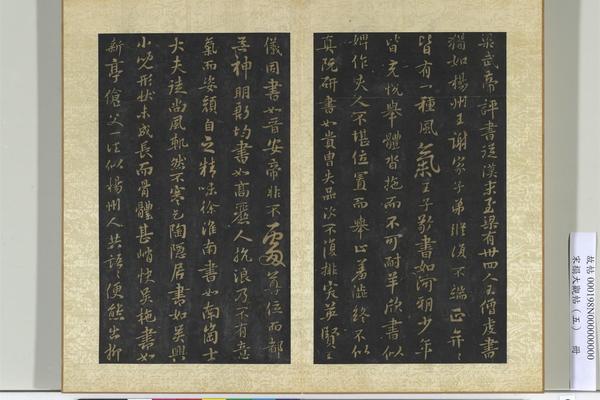 梁武帝評書從漢末至梁有卅四人王僧虔書
猶如楊州王謝家子弟縱復不端正弈〻
皆有一種風氣王子敬書如河朔少年
皆充悅舉體沓拖而不可耐羊欣書似
婢作夫人不堪位置而舉止羞澁終不似
真阮研書如貴胄失品次不復排突英賢王
儀同書如晉安帝非不處尊位而都
無神明殷均書如高麗人抗浪乃不有意
氣而姿顏自乏精味徐淮南書如南崗士
大夫徒尚風軌然不寒乞陶隱居書如吳興
小兒形狀未成長而骨體甚峭快吳施書如
新亭傖父一往似楊州人共語〻便態出柳
故帖 000198N000000000
宋搨大觀帖（五） 冊